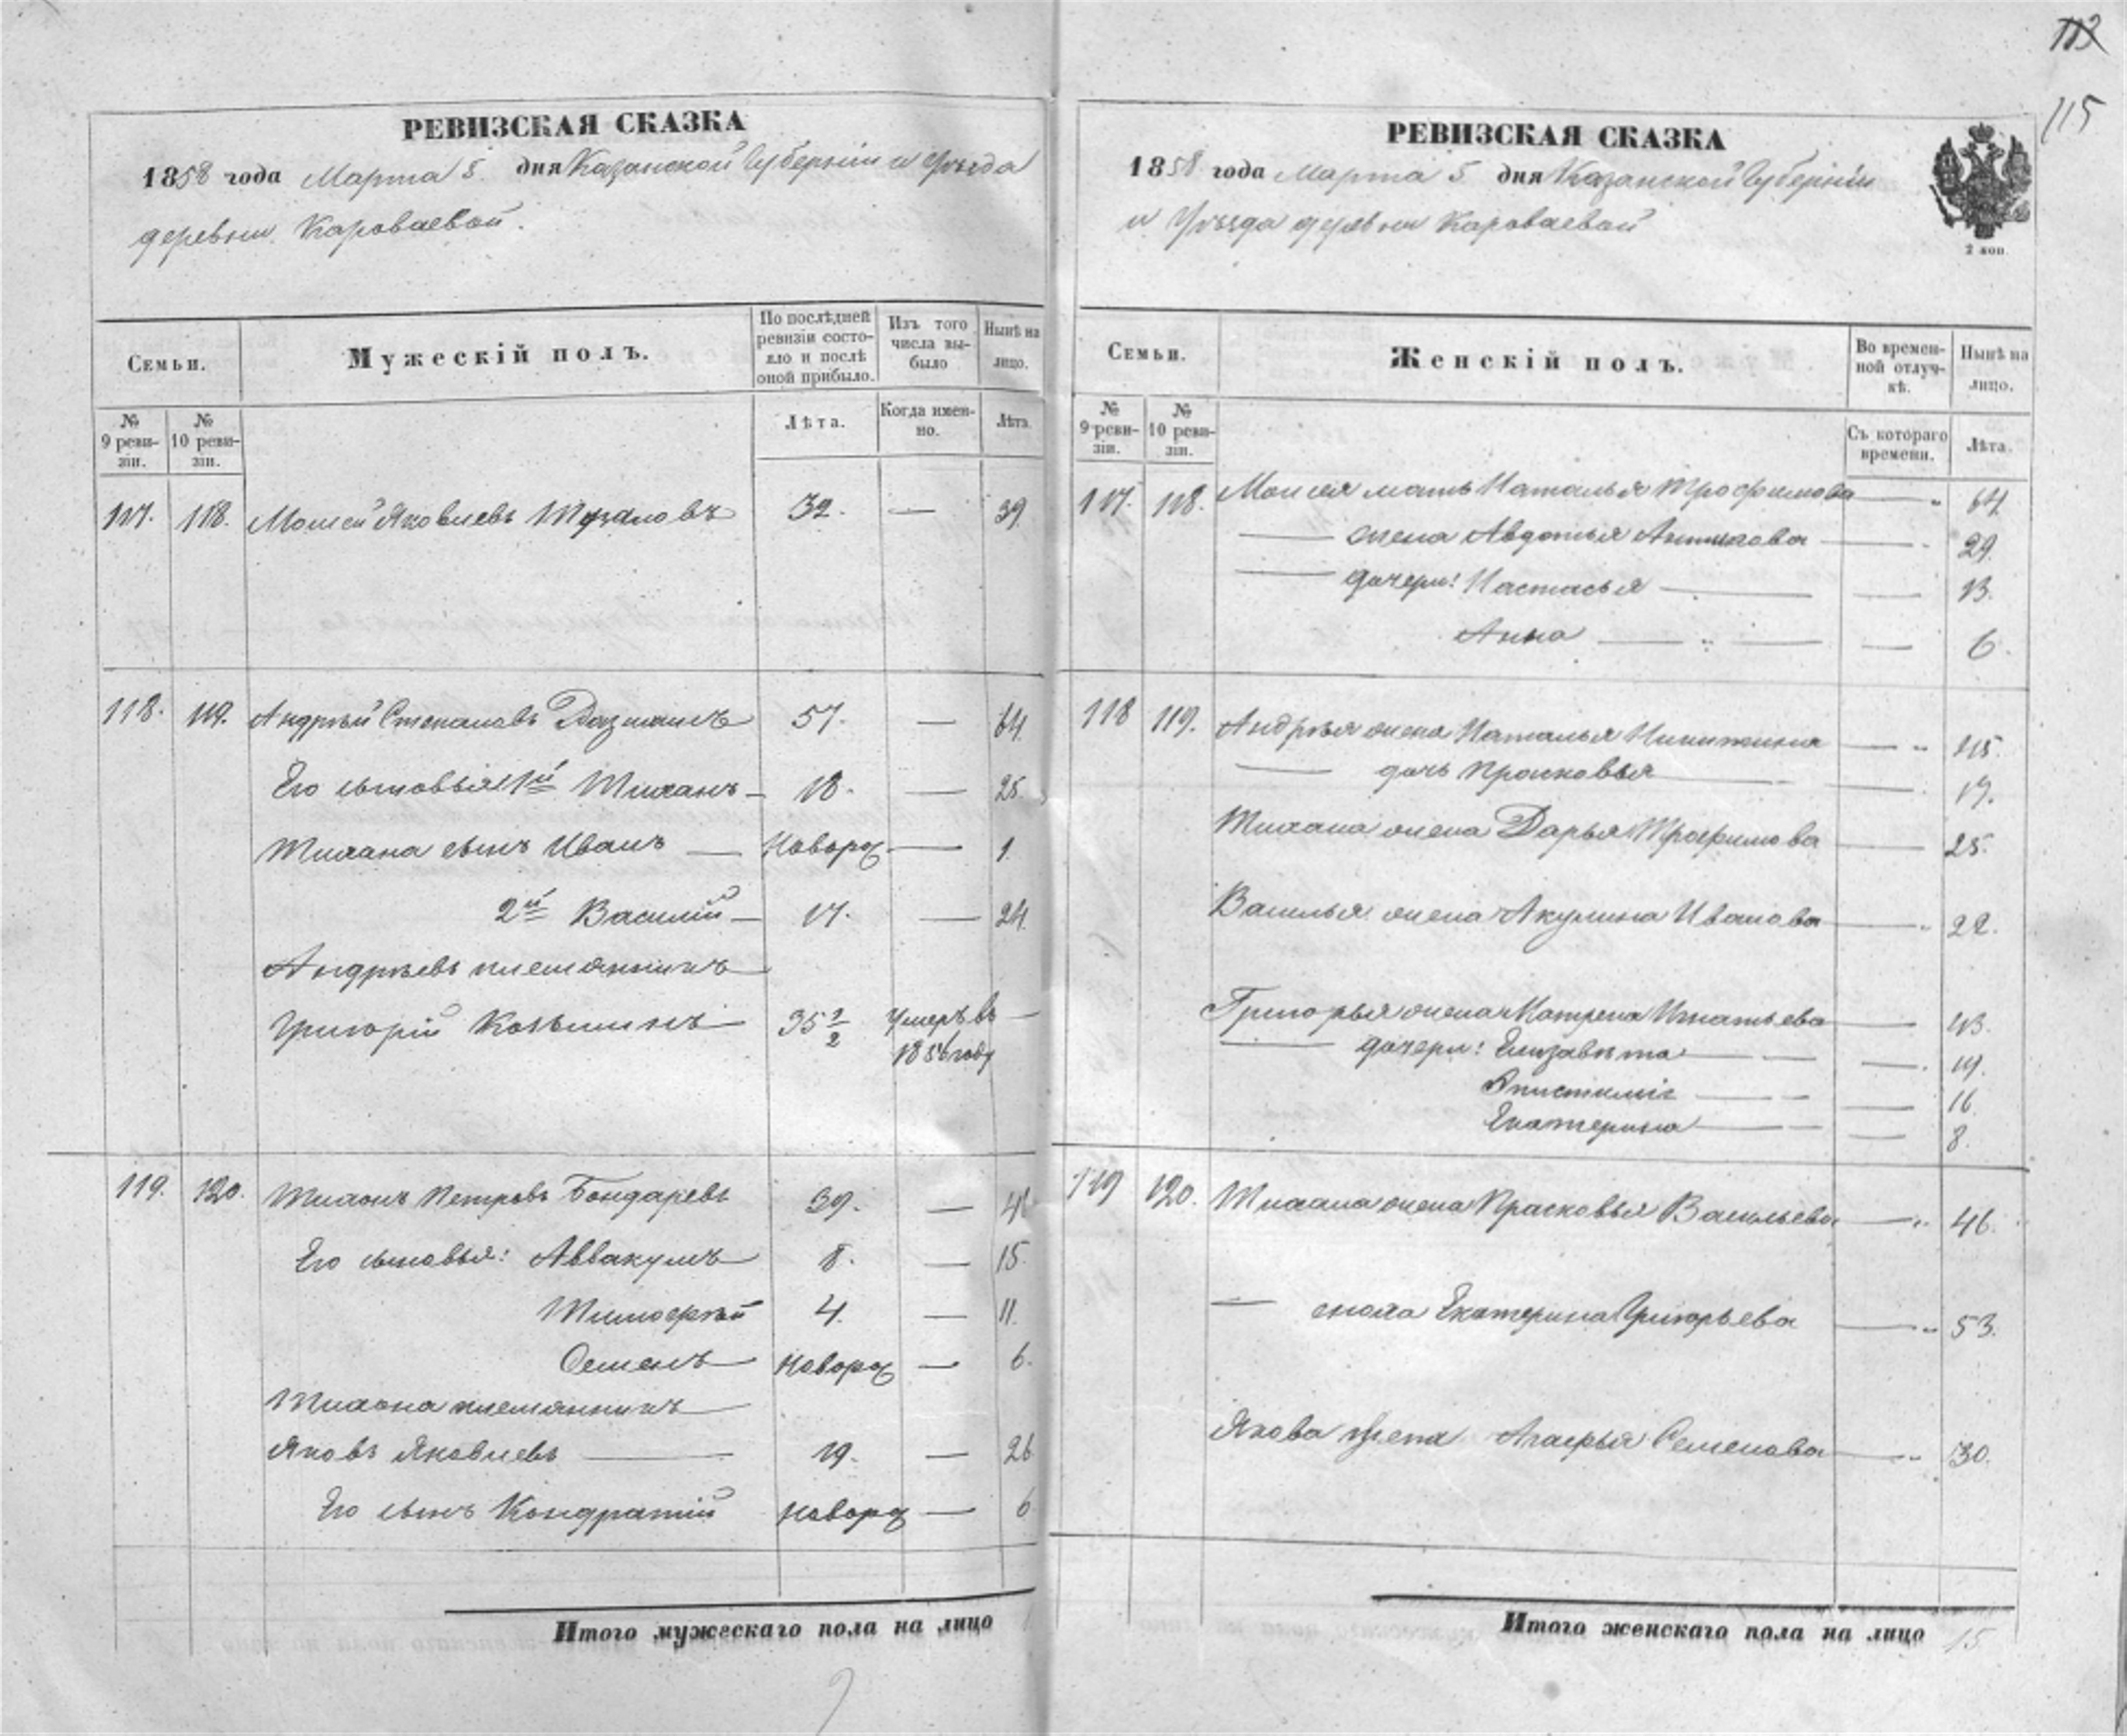 113
115
РЕВИЗСКАЯ СКАЗКА
1858 года Марта 5 дня Казанской Губерніи и Уѣзда
деревни Короваевой.
Семьи.
Мужескій полъ.
По послѣдней ревизіи состояло и послѣ оной прибыло.
Изъ того числа выбыло
Нынѣ на лицо.
№ 9 ревизіи.
№ 10 ревизіи.
Лѣта.
Когда именно.
Лѣта.
117. 118. Моисей Яковлевъ 32. — 39.
118. 119. Андрѣй Степановъ 57. — 64.
Его сыновья 1й Тихонъ — 18. — 25.
Тихона сынъ Иванъ — Новорож — 1.
2й Василій — 17. — 24.
Андрѣевъ племянникъ
Григорій Козьминъ 35 1/2 Умеръ въ —
1856 году
119. 120. Тихонъ Петровъ Бондаревъ 39. — 46
Его сыновья: Аввакумъ 8. — 15.
Тимофѣй 4. — 11.
Семенъ Новорож — 6.
Тихона племянникъ
Яковъ Яковлевъ — 19. — 26
Его сынъ Кондратій Новорож — 6
Итого мужескаго пола на лицо
РЕВИЗСКАЯ СКАЗКА
1858 года Марта 5 дня Казанской Губерніи
и Уѣзда деревни Короваевой
2 коп.
Семьи.
Женскій полъ.
Во временной отлучкѣ.
Нынѣ на лицо.
№ 9 ревизіи.
№ 10 ревизіи.
Съ котораго времени.
Лѣта.
117. 118. Моисея мать Наталья Трофимова — 64
— жена Авдотья — 29.
— дочери: Настасья — 13.
Анна — 6.
118 119. Андрѣя жена Наталья Никитина — 45.
— дочь Прасковья — 17.
Тихона жена Дарья Трофимова — 25.
Василья жена Акулина Иванова — 22.
Григорья жена Матрена Игнатьева — 43.
— дочери: Елизавѣта — 19.
16.
Екатерина — 8.
119 120. Тихона жена Прасковья Васильева — 46.
— сноха Екатерина Григорьева — 53.
Якова жена Агафья Семенова — 30.
Итого женскаго пола на лицо 15